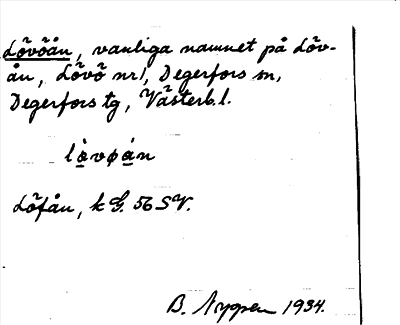 Lövöån, vanliga namnet på Löv-
ån, Lövö nr 1, Degerfors sn,
Degerfors tg, Västerb. l.
Löfån, k G. 56 SV.
B. Nygren 1934.